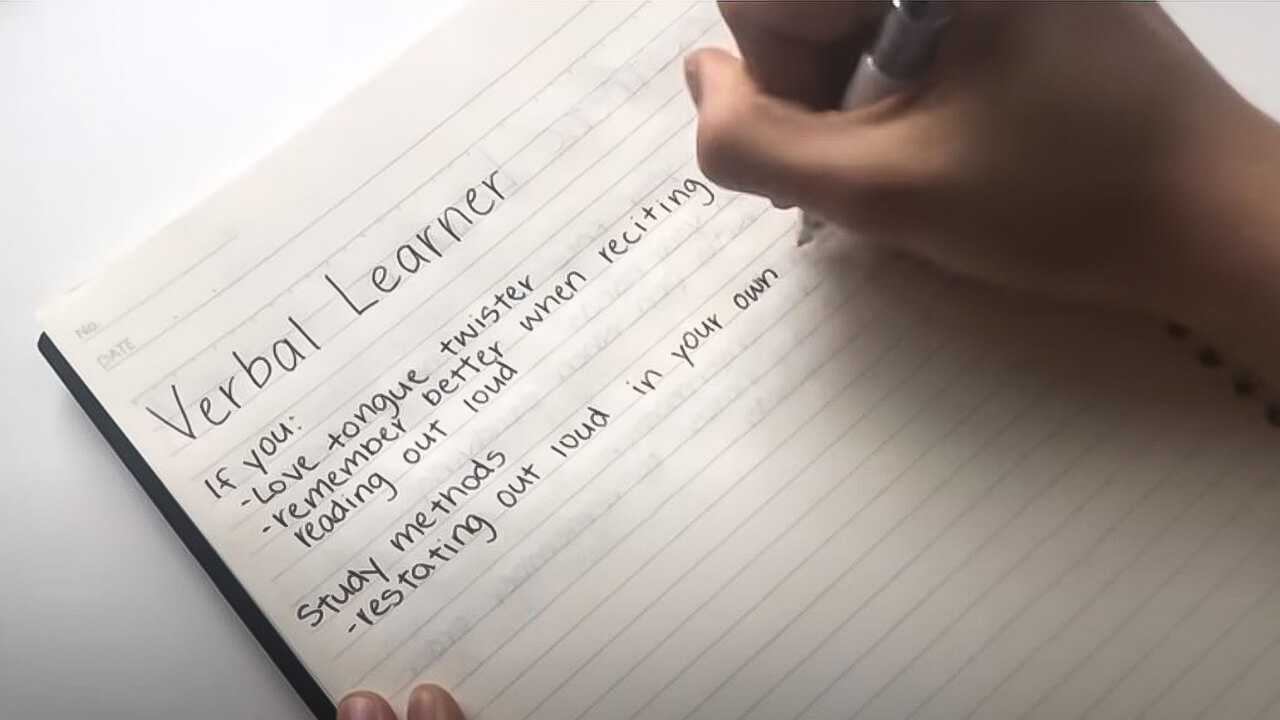 No.
DATE
Verbal Learner
If you:
-Love tongue twister
-remember better when reciting
reading out loud
Study methods
-restating out loud in your own